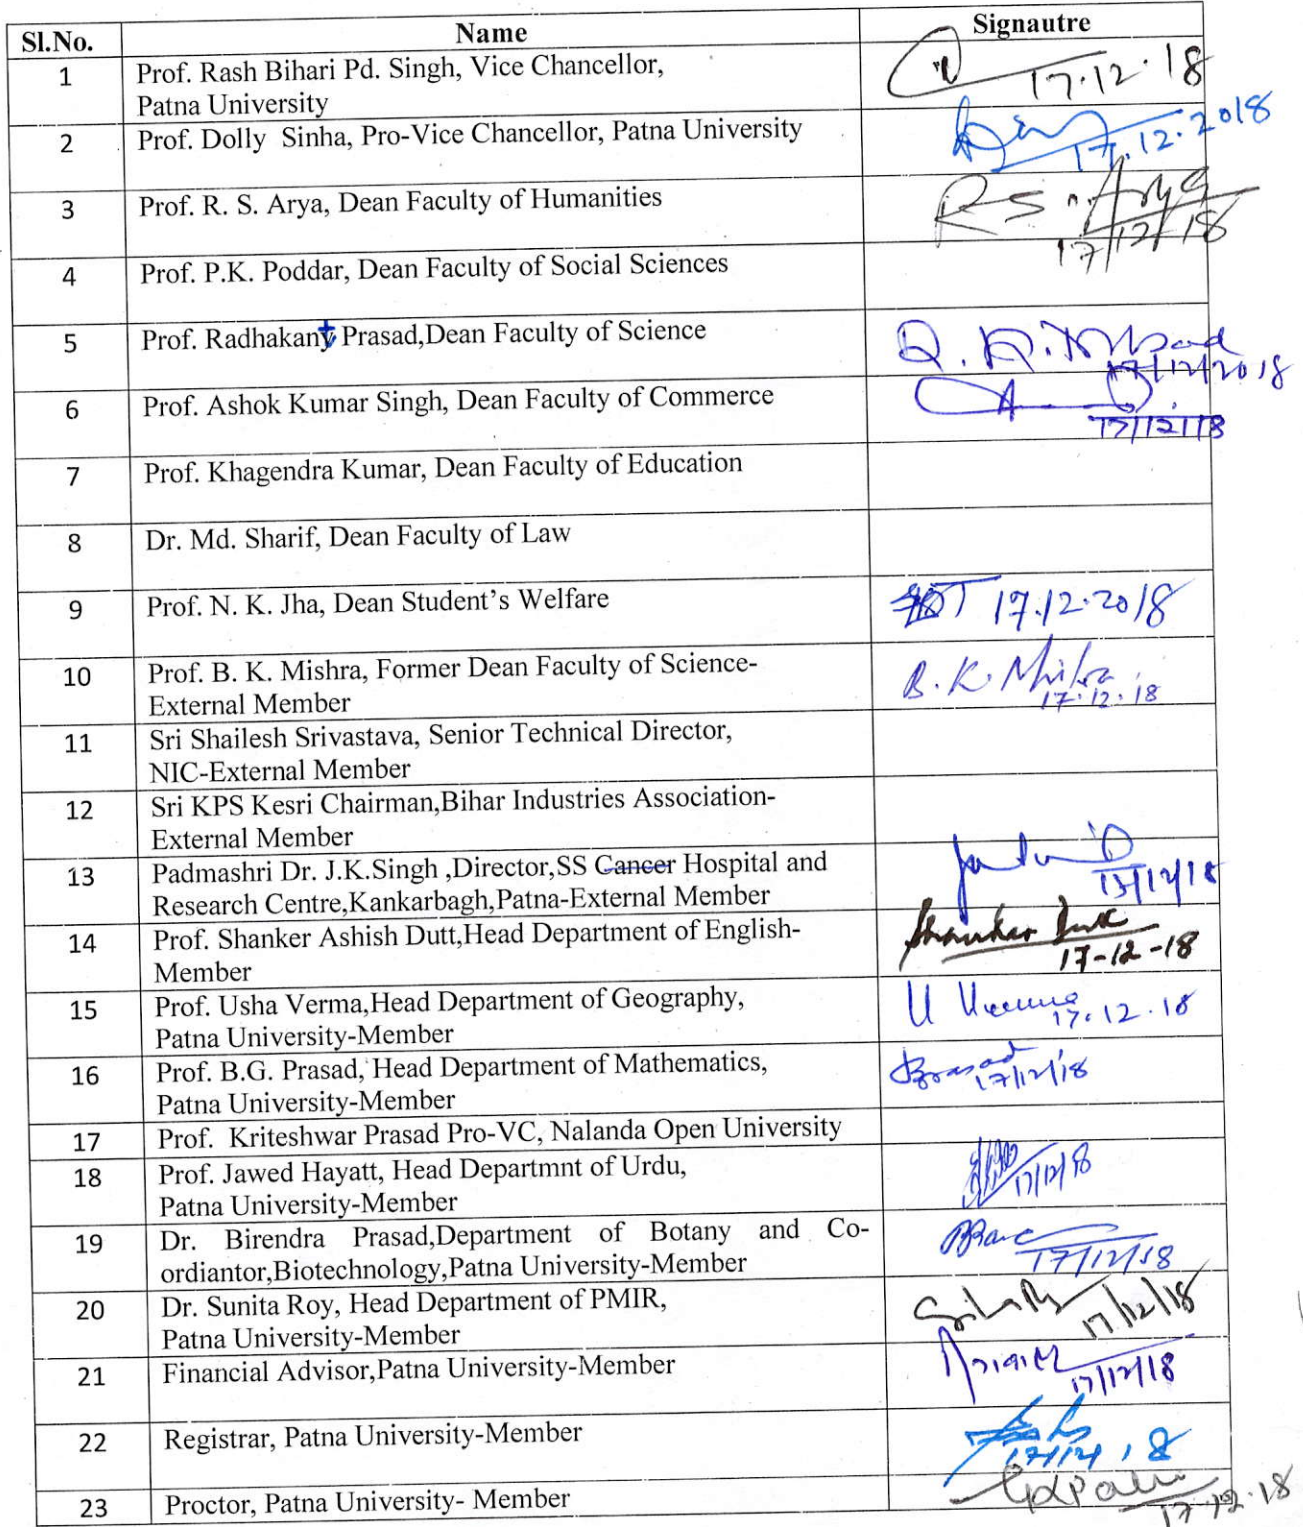 Sl.No. Name Signautre
1 Prof. Rash Bihari Pd. Singh, Vice Chancellor,
Patna University
17.12.18
2 Prof. Dolly Sinha, Pro-Vice Chancellor, Patna University
17.12.2018
3 Prof. R. S. Arya, Dean Faculty of Humanities
R S. Arya
17/12/18
4 Prof. P.K. Poddar, Dean Faculty of Social Sciences
5 Prof. Radhakant Prasad,Dean Faculty of Science
17/12/2018
6 Prof. Ashok Kumar Singh, Dean Faculty of Commerce
17/12/18
7 Prof. Khagendra Kumar, Dean Faculty of Education
8 Dr. Md. Sharif, Dean Faculty of Law
9 Prof. N. K. Jha, Dean Student's Welfare
17.12.2018
10 Prof. B. K. Mishra, Former Dean Faculty of Science-
External Member
B. K. Mishra
17.12.18
11 Sri Shailesh Srivastava, Senior Technical Director,
NIC-External Member
12 Sri KPS Kesri Chairman,Bihar Industries Association-
External Member
13 Padmashri Dr. J.K.Singh ,Director,SS Cancer Hospital and
Research Centre,Kankarbagh,Patna-External Member
14 Prof. Shanker Ashish Dutt,Head Department of English-
Member
Shanker Dutt
17-12-18
15 Prof. Usha Verma,Head Department of Geography,
Patna University-Member
U Verma
17.12.18
16 Prof. B.G. Prasad, Head Department of Mathematics,
Patna University-Member
17/12/18
17 Prof. Kriteshwar Prasad Pro-VC, Nalanda Open University
18 Prof. Jawed Hayatt, Head Departmnt of Urdu,
Patna University-Member
17/12/18
19 Dr. Birendra Prasad,Department of Botany and Co-
ordiantor,Biotechnology,Patna University-Member
17/12/18
20 Dr. Sunita Roy, Head Department of PMIR,
Patna University-Member
17/12/18
21 Financial Advisor,Patna University-Member
17/12/18
22 Registrar, Patna University-Member
23 Proctor, Patna University- Member
17.12.18